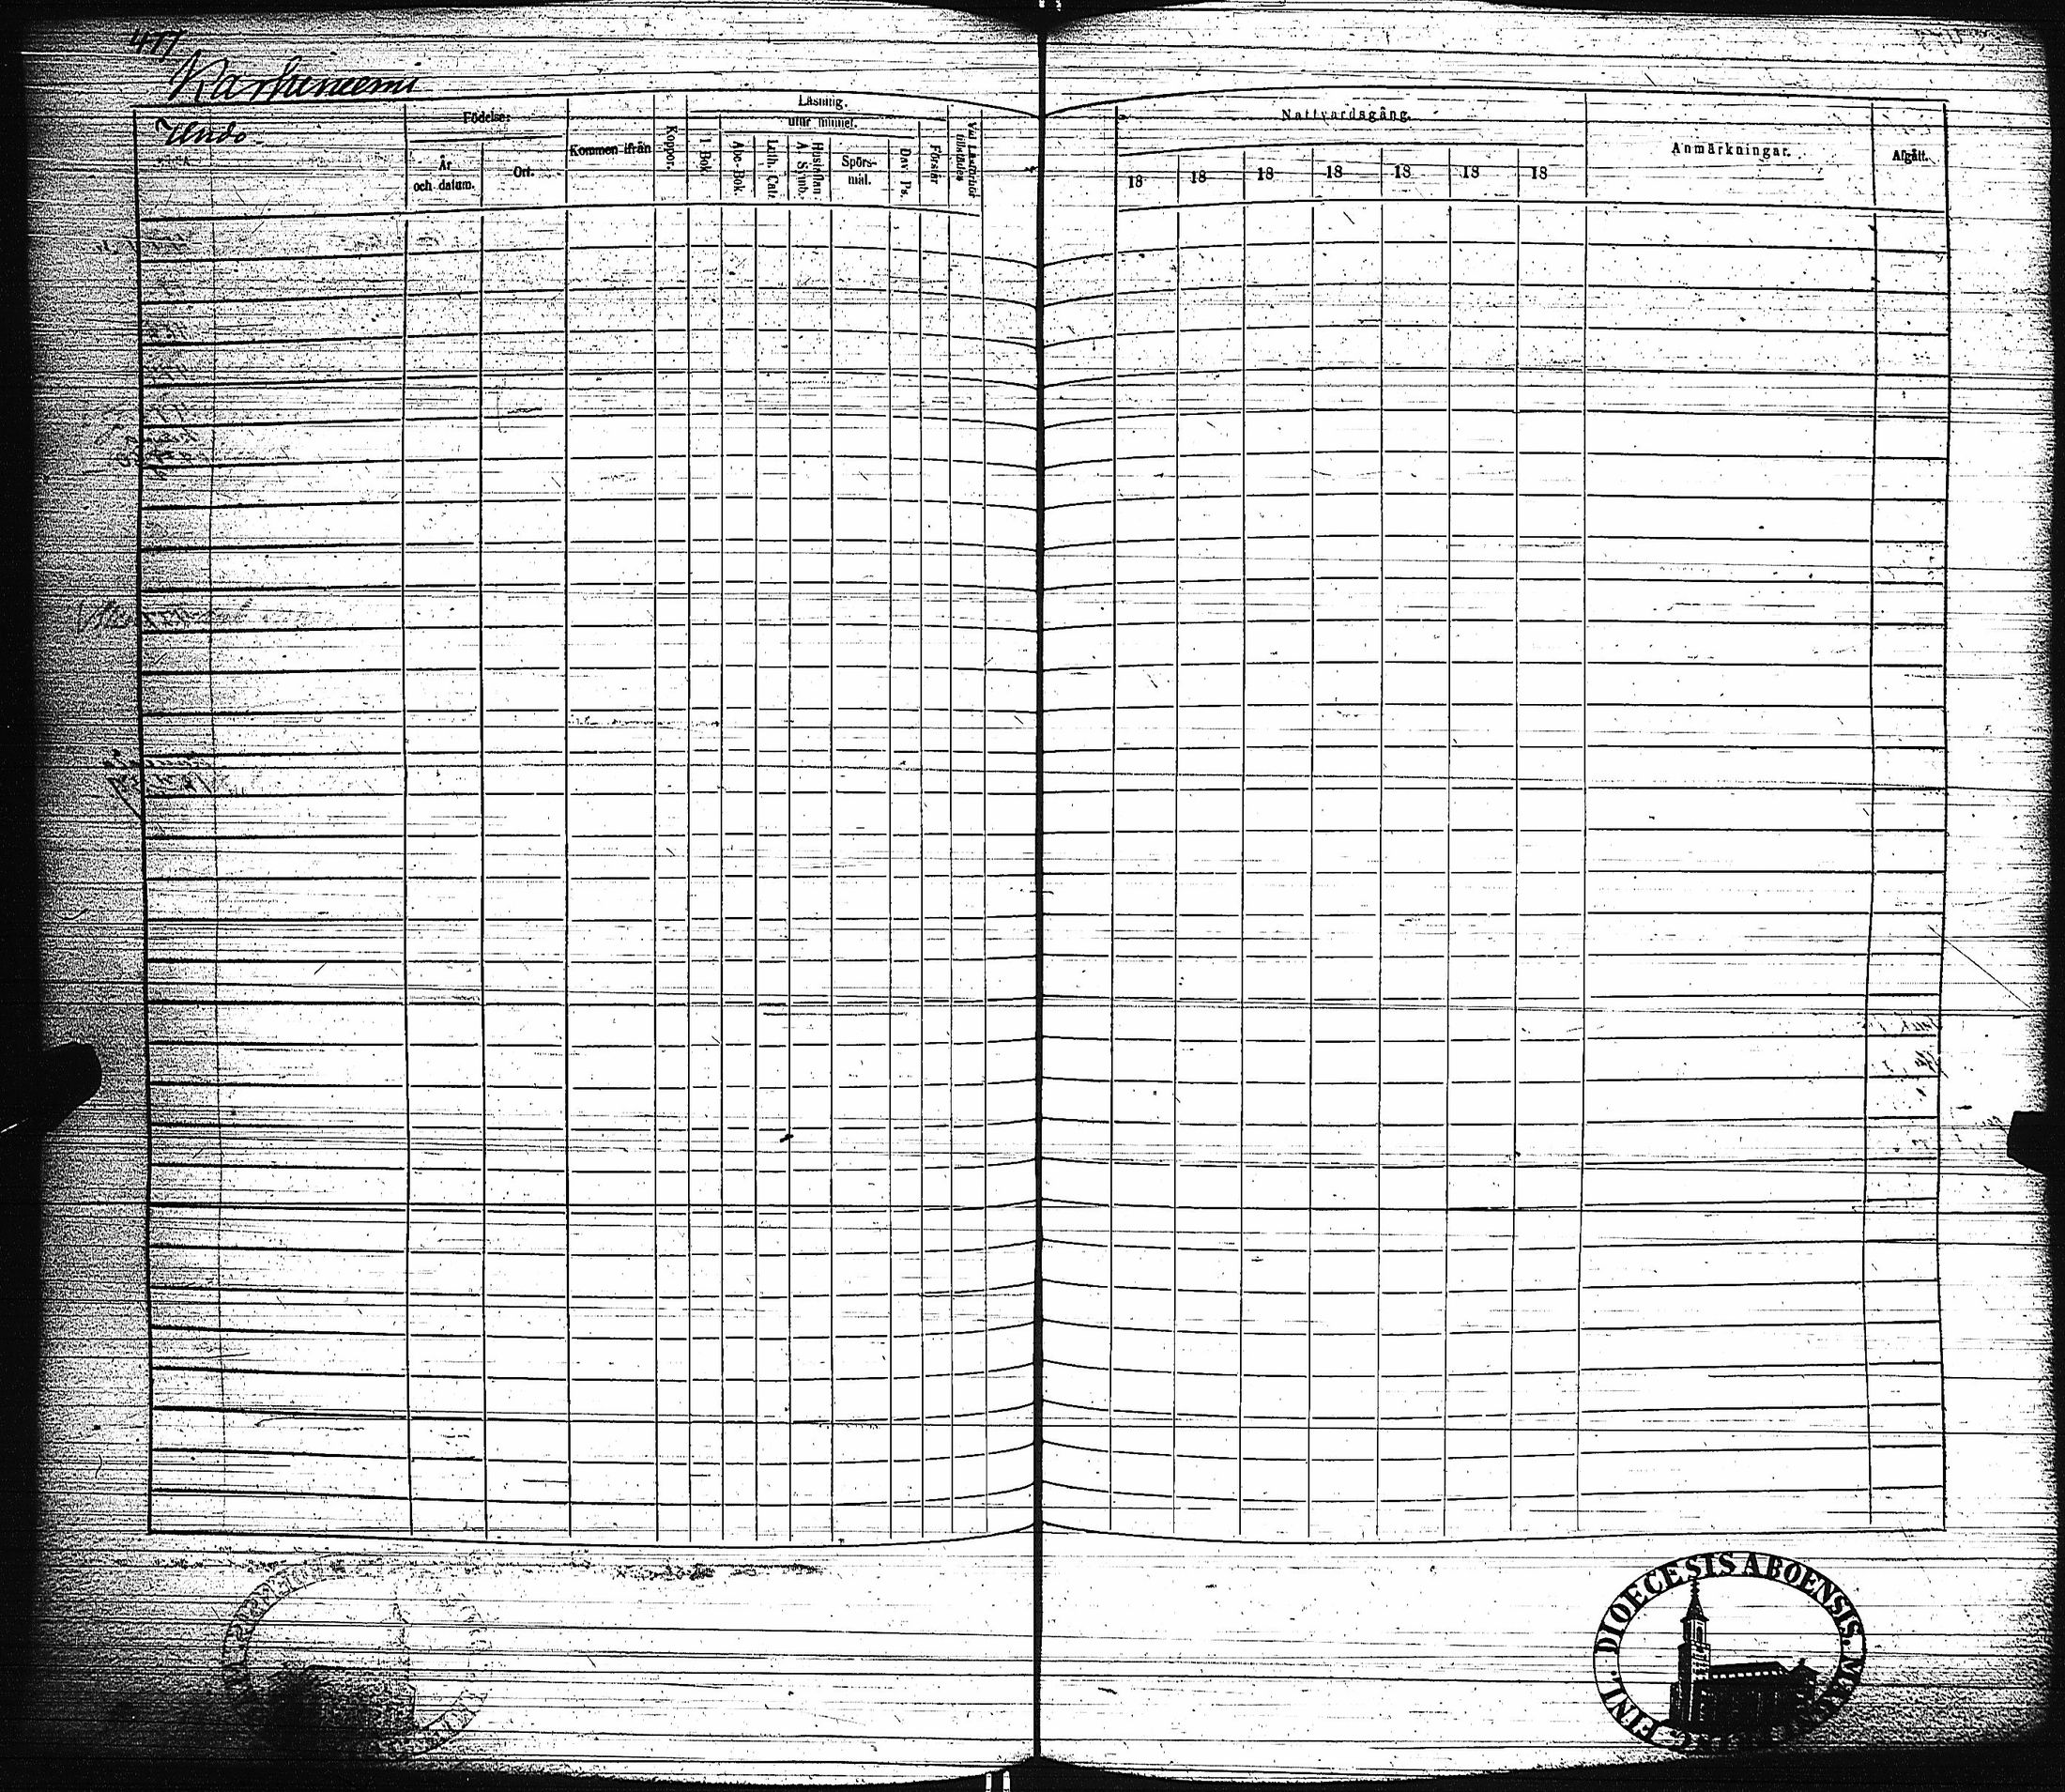 477
Karhuniemi
Uudo
Födelse:
År och datum.
Ort.
Kommen ifrån
Koppor.
Läsning.
utur minnet.
I Bok.
Abc-Bok.
Luth. Cat.
Hustaflan A. Symb.
Spörs-mål.
Dav. Ps.
Förstår
Vid Läsförhör tillstädes
Nattvardsgång.
18 18 18 18 18 18 18
Anmärkningar.
Afgått.
DIOECESIS ABOENSIS.